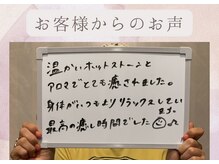 お客様からのお声
温かいホットストーンと
アロマでとても癒されました。
身体がいつもよりリラックスしてい
ます。
最高の癒し時間でした☺